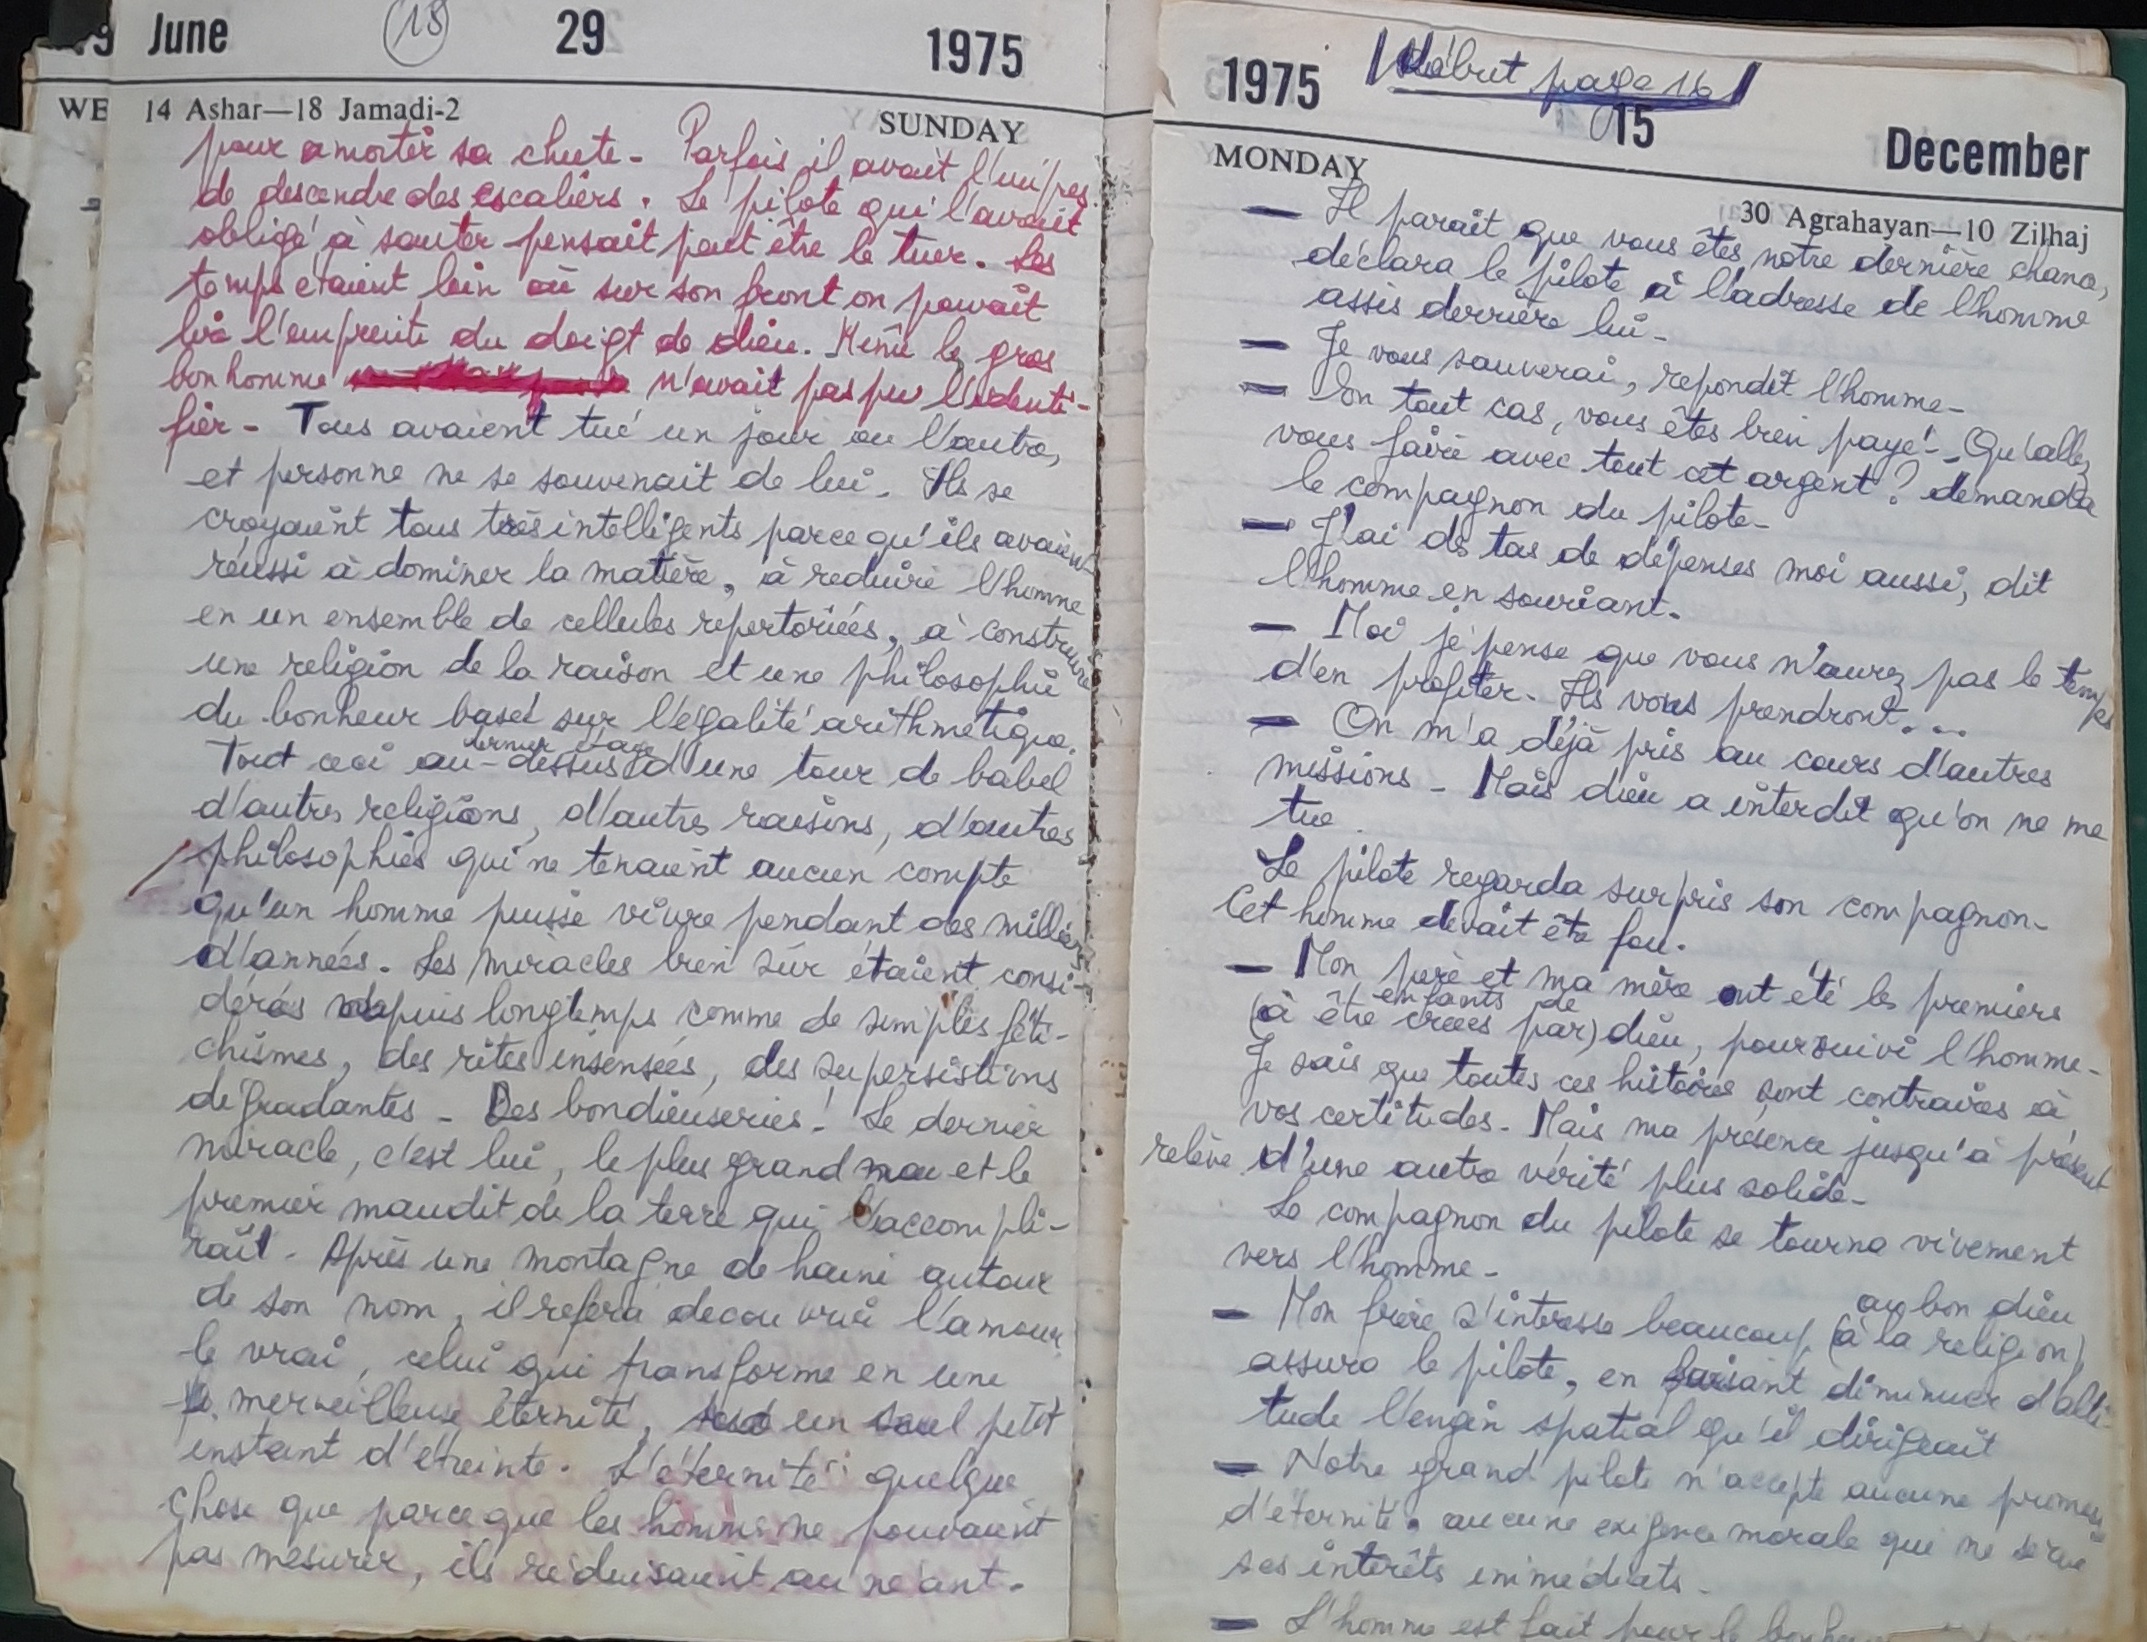 June 18 29 1975
WE 14 Ashar—18 Jamadi-2 SUNDAY
pour amortir sa chute. Parfois il avait l'impres.
de descendre des escaliers. Le pilote qui l'avait
obligé à sauter pensait peut être le tuer. Les
temps étaient loin où sur son front on pouvait
lire l'empreinte du doigt de dieu. Même le gros
bonhomme n'avait pas pu l'identi-
fier. Tous avaient tué un jour ou l'autre,
et personne ne se souvenait de lui. Ils se
croyaient tous très intelligents parce qu'ils avaient
réussi à dominer la matière, à reduire l'homme
en un ensemble de cellules repertoriées, à construire
une religion de la raison et une philosophie
du bonheur basée sur l'égalité arithmétique.
dernier étage
Tout ceci au-dessus d'une tour de babel
d'autres religions, d'autres raisons, d'autres
philosophies qui ne tenaient aucun compte
qu'un homme puisse vivre pendant des milliers
d'années. Les miracles bien sûr étaient consi-
dérés depuis longtemps comme de simples féti-
chismes, des rites insensées, des supersistions
dégradantes - Des bondieuseries! Le dernier
miracle, c'est lui, le plus grand et le
premier maudit de la terre qui l'accompli-
rait. Après une montagne de haine autour
de son nom, il refera decouvrir l'amour
le vrai, celui qui transforme en une
merveilleuse éternité, un seul petit
instant d'étreinte. L'éternité! quelque
chose que parce que les hommes ne pouvaient
pas mesurer, ils réduisaient au néant.
1975 début page 16 15 December
MONDAY 30 Agrahayan—10 Zilhaj
— Il parait que vous êtes notre dernière chance,
déclara le pilote à l'adresse de l'homme
assis derrière lui.
— Je vous sauverai, repondit l'homme.
— En tout cas, vous êtes bien payé. Qu'allez
vous faire avec tout cet argent? demanda
le compagnon du pilote.
— J'ai des tas de dépenses moi aussi, dit
l'homme en souriant.
— Moi je pense que vous n'aurez pas le temps
d'en profiter. Ils vous prendront...
— On m'a déjà pris au cours d'autres
missions. Mais dieu a interdit qu'on ne me
tue.
Le pilote regarda surpris son compagnon.
Cet homme devait être fou.
— Mon père et ma mère ont été les premiers
enfants de
(à être créées par) dieu, poursuivi l'homme.
Je sais que toutes ces histoires sont contraires à
vos certitudes. Mais ma présence jusqu'à présent
relève d'une autre vérité plus solide.
Le compagnon du pilote se tourna vivement
vers l'homme.
au bon dieu
— Mon frère s'intéresse beaucoup (à la religion),
assura le pilote, en faisant diminuer d'alti-
tude l'engin spatial qu'il dirigeait
— Notre grand pilote n'accepte aucune promesse
d'éternité, aucune exigence morale qui ne serve
ses intérêts immédiats.
— L'homme est fait pour le bonheur